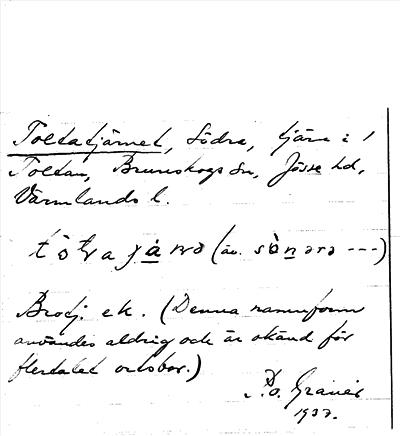 Toltatjärnet, Södra, tjärn i
Toltan, Brunskogs sn, Jösse hd,
Värmlands l.
(äv. ---)
Brodj. ek. (Denna namnform
användes aldrig och är okänd för
flertalet ortsbor.)
P.O. Granér
1937.